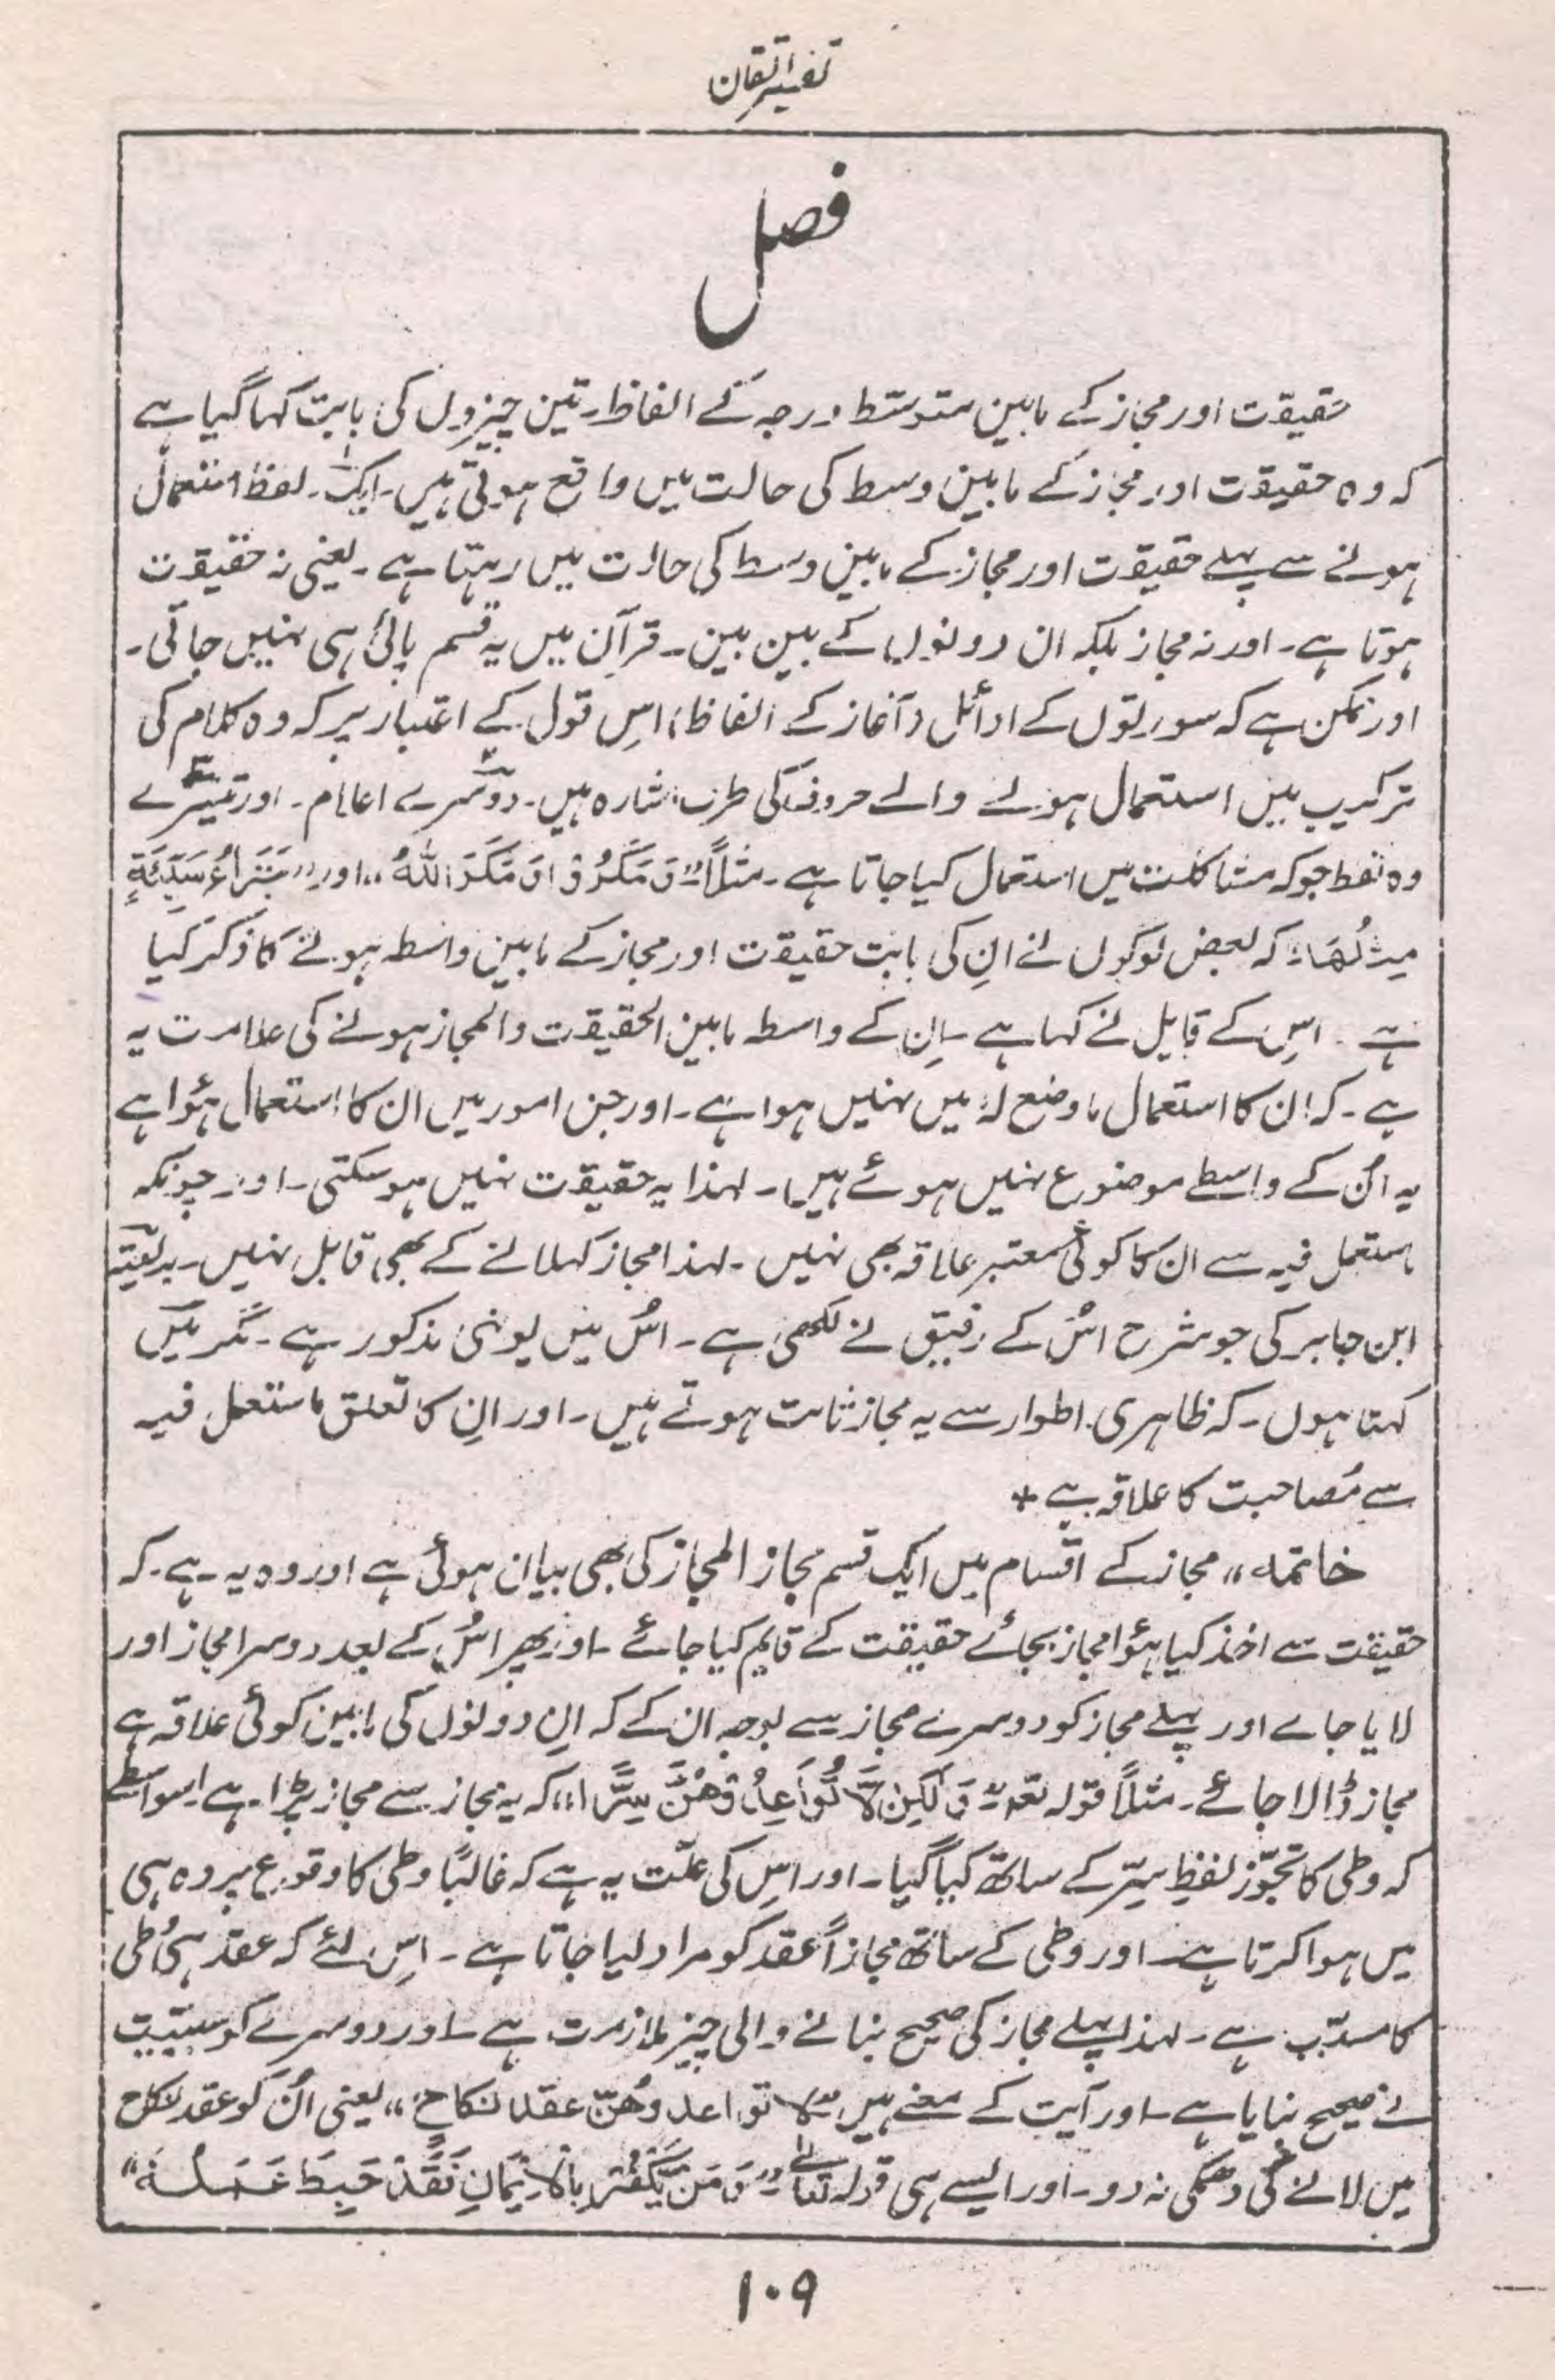 تفسیر اتقان
فصل
حقیقت اور مجاز کے مابین متوسط درجہ کے الفاظ۔ تین چیزوں کی بابت کہا گیا ہے
کہ وہ حقیقت اور مجاز کے مابین وسط کی حالت میں واقع ہوتی ہیں۔ ایک۔ لفظ استعمال
ہونے سے پہلے حقیقت اور مجاز کے مابین وسط کی حالت میں رہتا ہے۔ یعنی نہ حقیقت
ہوتا ہے۔ اور نہ مجاز بلکہ ان دونوں کے بین بین۔ قرآن میں یہ قسم پائی ہی نہیں جاتی۔
اور ممکن ہے کہ سورتوں کے اوائل (آغاز کے الفاظ) اس قول کے اعتبار پر کہ وہ کلام کی
ترکیب میں استعمال ہونے والے حروف کی طرف اشارہ ہیں۔ دوسرے اعلام۔ اور تیسرے
وہ لفظ جو کہ مشاکلت میں استعمال کیا جاتا ہے۔ مثلاً "وَمَكَرُوْا وَمَكَرَ اللهُ" اور "جَزَاءُ سَيِّئَةٍ
مِثْلُهَا" کہ بعض لوگوں نے انِ کی بابت حقیقت اور مجاز کے مابین واسطہ ہونے کا ذکر کیا
ہے۔ اسِ کے قایل نے کہا ہے۔ انِ کے واسطہ مابین الحقیقت والمجاز ہونے کی علامت یہ
ہے۔ کہ ان کا استعمال ماوضع لہٗ میں نہیں ہوا ہے۔ اور جن امور میں ان کا استعمال ہؤا ہے
یہ اُن کے واسطے موضوع نہیں ہوئے ہیں۔ لہذا یہ حقیقت نہیں ہو سکتی۔ اور چونکہ
مستعمل فیہ سے ان کا کوئی معتبر علاقہ بھی نہیں۔ لہذا مجاز کہلانے کے بھی قابل نہیں۔ بدیعیّہ
ابن جابر کی جو شرح اسُ کے رفیق نے لکھی ہے۔ اسُ میں یونہی مذکور ہے۔ مگر میں
کہتا ہوں۔ کہ ظاہری اطوار سے یہ مجاز ثابت ہوتے ہیں۔ اور انِ کا تعلق ماستعمل فیہ
سے مُصاحبت کا علاقہ ہے *
خاتمہ" مجاز کے اقسام میں ایک قسم مجاز المجاز کی بھی بیان ہوئی ہے اور وہ یہ ہے۔ کہ
حقیقت سے اخذ کیا ہؤا مجاز بجائے حقیقت کے قایم کیا جائے۔ اور پھر اسُ کے بعد دوسرا مجاز اور
لایا جاے اور پہلے مجاز کو دوسرے مجاز سے بوجہ ان کے کہ انِ دونوں کی مابین کوئی علاقہ ہے
مجاز ڈالا جائے۔ مثلاً قولہ تعہ "وَلٰكِنْ لَّا تُوَاعِدُوْهُنَّ سِرًّا" کہ یہ مجاز سے مجاز پڑا ہے اِسواسطے
کہ وطی کا تجوّز لفظِ سِرّ کے ساتھ کیا گیا۔ اور اسِ کی علّت یہ ہے کہ غالباً وطی کا وقوع پردہ ہی
میں ہوا کرتا ہے۔ اور وطی کے ساتھ مجازاً عقد کو مراد لیا جاتا ہے۔ اسِ لئے کہ عقد ہی وُطی
کا مسبّب ہے۔ لہذا پہلے مجاز کی صحیح بنانے والی چیز ملازمت ہے۔ اور دوسرے کو سببّیت
نے صحیح بنایا ہے۔ اور آیت کے معنے ہیں "لا تواعدوھُنّ عقد النکاح" یعنی اُن کو عقد نکاح
میں لانے کی دھمکی نہ دو۔ اور ایسے ہی قولہ تعالےٰ "وَمَنْ يَّكْفُرْ بِالْاِيْمَانِ فَقَدْ حَبِطَ عَمَلُهٗ"
۱۰۹